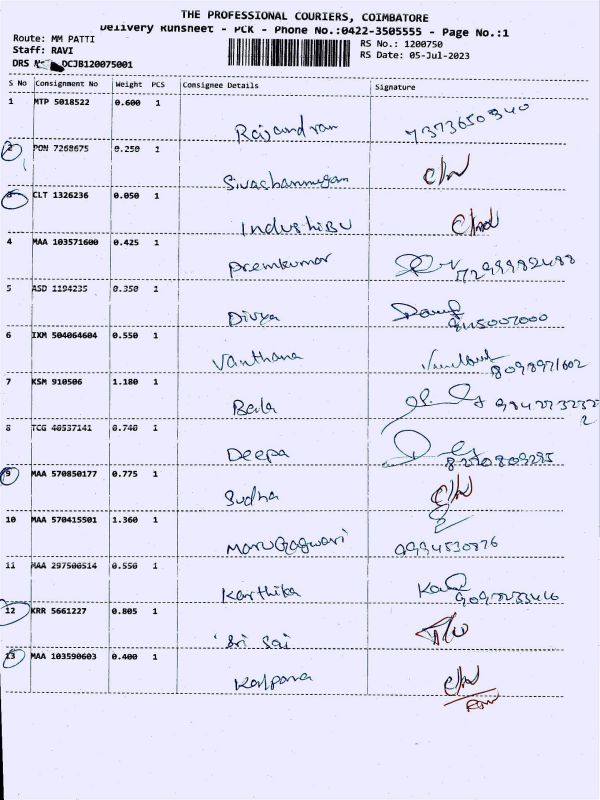 THE PROFESSIONAL COURIERS, COIMBATORE
Delivery Runsheet - PCK - Phone No.:0422-3505555 - Page No.:1
Route: MM PATTI
RS No.: 1200750
Staff: RAVI
RS Date: 05-Jul-2023
DRS DCJB120075001
S No Consignment No Weight PCS Consignee Details Signature
1 MTP 5018522 0.600 1
Rajandran 7373650340
2 PON 7268675 0.250 1
Sivashanmugam
3 CLT 1326236 0.050 1
Industribu
4 MAA 103571600 0.425 1
Premkumar 7299982488
5 ASD 1194235 0.350 1
Divya
6 IXM 504064604 0.550 1
Vanthana 8098971602
7 KSM 910506 1.180 1
Bala
8 TCG 40537141 0.740 1
Deepa 8270809295
9 MAA 570850177 0.775 1
Sudha
10 MAA 570415501 1.360 1
9994530876
11 MAA 297500514 0.550 1
Karthika
12 KRR 5661227 0.805 1
Sri Sai
13 MAA 103590603 0.400 1
Kalpana